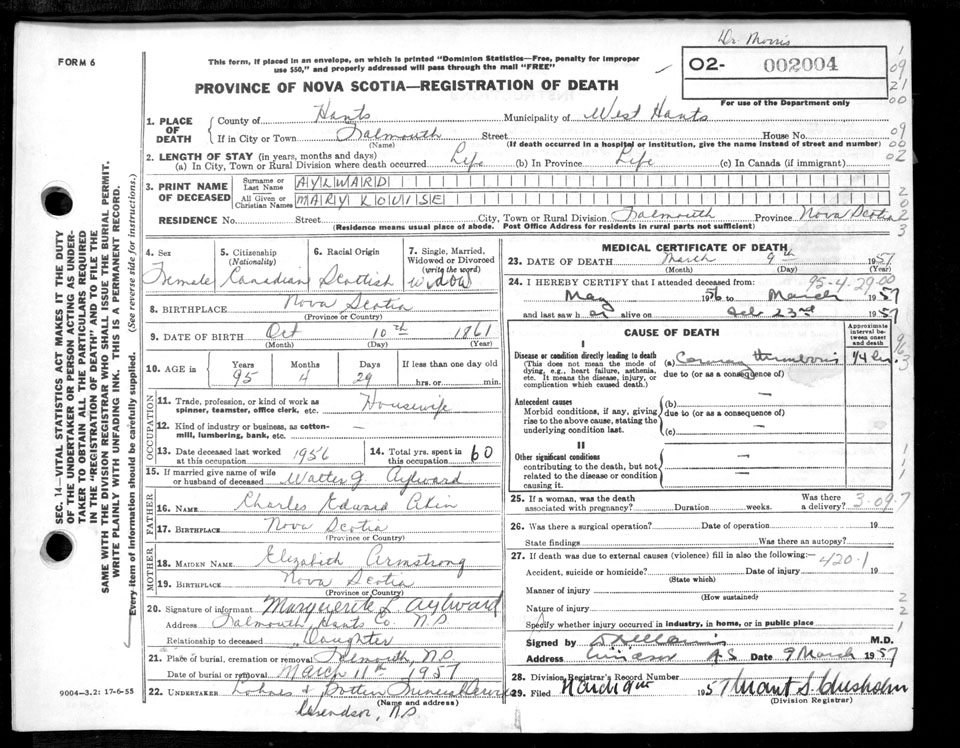 Dr. Morris
FORM 6
This form, if placed in an envelope, on which is printed "Dominion Statistics—Free, penalty for improper
use $50," and properly addressed will pass through the mail "FREE"
O2- 002004
For use of the Department only
PROVINCE OF NOVA SCOTIA—REGISTRATION OF DEATH
1. PLACE OF DEATH
County of Hants Municipality of West Hants
If in City or Town Falmouth Street House No.
(Name) (If death occurred in a hospital or institution, give the name instead of street and number)
2. LENGTH OF STAY (in years, months and days)
(a) In City, Town or Rural Division where death occurred Life (b) In Province Life (c) In Canada (if immigrant)
3. PRINT NAME OF DECEASED
Surname or Last Name AYLWARD
All Given or Christian Names MARY LOUISE
RESIDENCE No. Street City, Town or Rural Division Falmouth Province Nova Scotia
(Residence means usual place of abode. Post Office Address for residents in rural parts not sufficient)
4. Sex Female
5. Citizenship (Nationality) Canadian
6. Racial Origin Scottish
7. Single, Married, Widowed or Divorced (write the word) widow
8. BIRTHPLACE Nova Scotia
(Province or Country)
9. DATE OF BIRTH Oct 10th 1861
(Month) (Day) (Year)
10. AGE IN Years 95 Months 4 Days 29 If less than one day old hrs. or min.
OCCUPATION
11. Trade, profession, or kind of work as spinner, teamster, office clerk, etc. Housewife
12. Kind of industry or business, as cotton-mill, lumbering, bank, etc. —
13. Date deceased last worked at this occupation 1956
14. Total yrs. spent in this occupation 60
15. If married give name of wife or husband of deceased Walter J. Aylward
FATHER
16. NAME Charles Edward Akin
17. BIRTHPLACE Nova Scotia
(Province or Country)
MOTHER
18. MAIDEN NAME Elizabeth Armstrong
19. BIRTHPLACE Nova Scotia
(Province or Country)
20. Signature of informant Marguerite L. Aylward
Address Falmouth, Hants Co. N.S.
Relationship to deceased Daughter
21. Place of burial, cremation or removal Falmouth, N.S.
Date of burial or removal March 11th 1957
22. UNDERTAKER
(Name and address)
N.S.
9004-3.2: 17-6-55
SEC. 14—VITAL STATISTICS ACT MAKES IT THE DUTY
OF THE UNDERTAKER OR PERSON ACTING AS UNDER-
TAKER TO OBTAIN ALL THE PARTICULARS REQUIRED
IN THE "REGISTRATION OF DEATH" AND TO FILE THE
SAME WITH THE DIVISION REGISTRAR WHO SHALL ISSUE THE BURIAL PERMIT.
WRITE PLAINLY WITH UNFADING INK. THIS IS A PERMANENT RECORD.
Every item of information should be carefully supplied. (See reverse side for instructions.)
MEDICAL CERTIFICATE OF DEATH
23. DATE OF DEATH March 9th 1957
(Month) (Day) (Year)
95-4-29 00
24. I HEREBY CERTIFY that I attended deceased from:
May 1956 to March 1957
and last saw her alive on Feb 23rd 1957
CAUSE OF DEATH
Approximate interval between onset and death
I
Disease or condition directly leading to death
(This does not mean the mode of dying, e.g., heart failure, asthenia, etc. It means the disease, injury, or complication which caused death.)
(a) Coronary Thrombosis
due to (or as a consequence of)
Antecedent causes
Morbid conditions, if any, giving rise to the above cause, stating the underlying condition last.
(b) —
due to (or as a consequence of)
(c) —
II
Other significant conditions
contributing to the death, but not related to the disease or condition causing it
25. If a woman, was the death associated with pregnancy? Duration weeks. Was there a delivery? 3-097
26. Was there a surgical operation? Date of operation 19
State findings Was there an autopsy?
27. If death was due to external causes (violence) fill in also the following:—
420.1
Accident, suicide or homicide? Date of injury 19
(State which)
Manner of injury
(How sustained)
Nature of injury
Specify whether injury occurred in industry, in home, or in public place
Signed by M.D.
Address Windsor N.S Date 9 March 1957
28. Division Registrar's Record Number
29. Filed March 9th 1957 Chisholm
(Division Registrar)